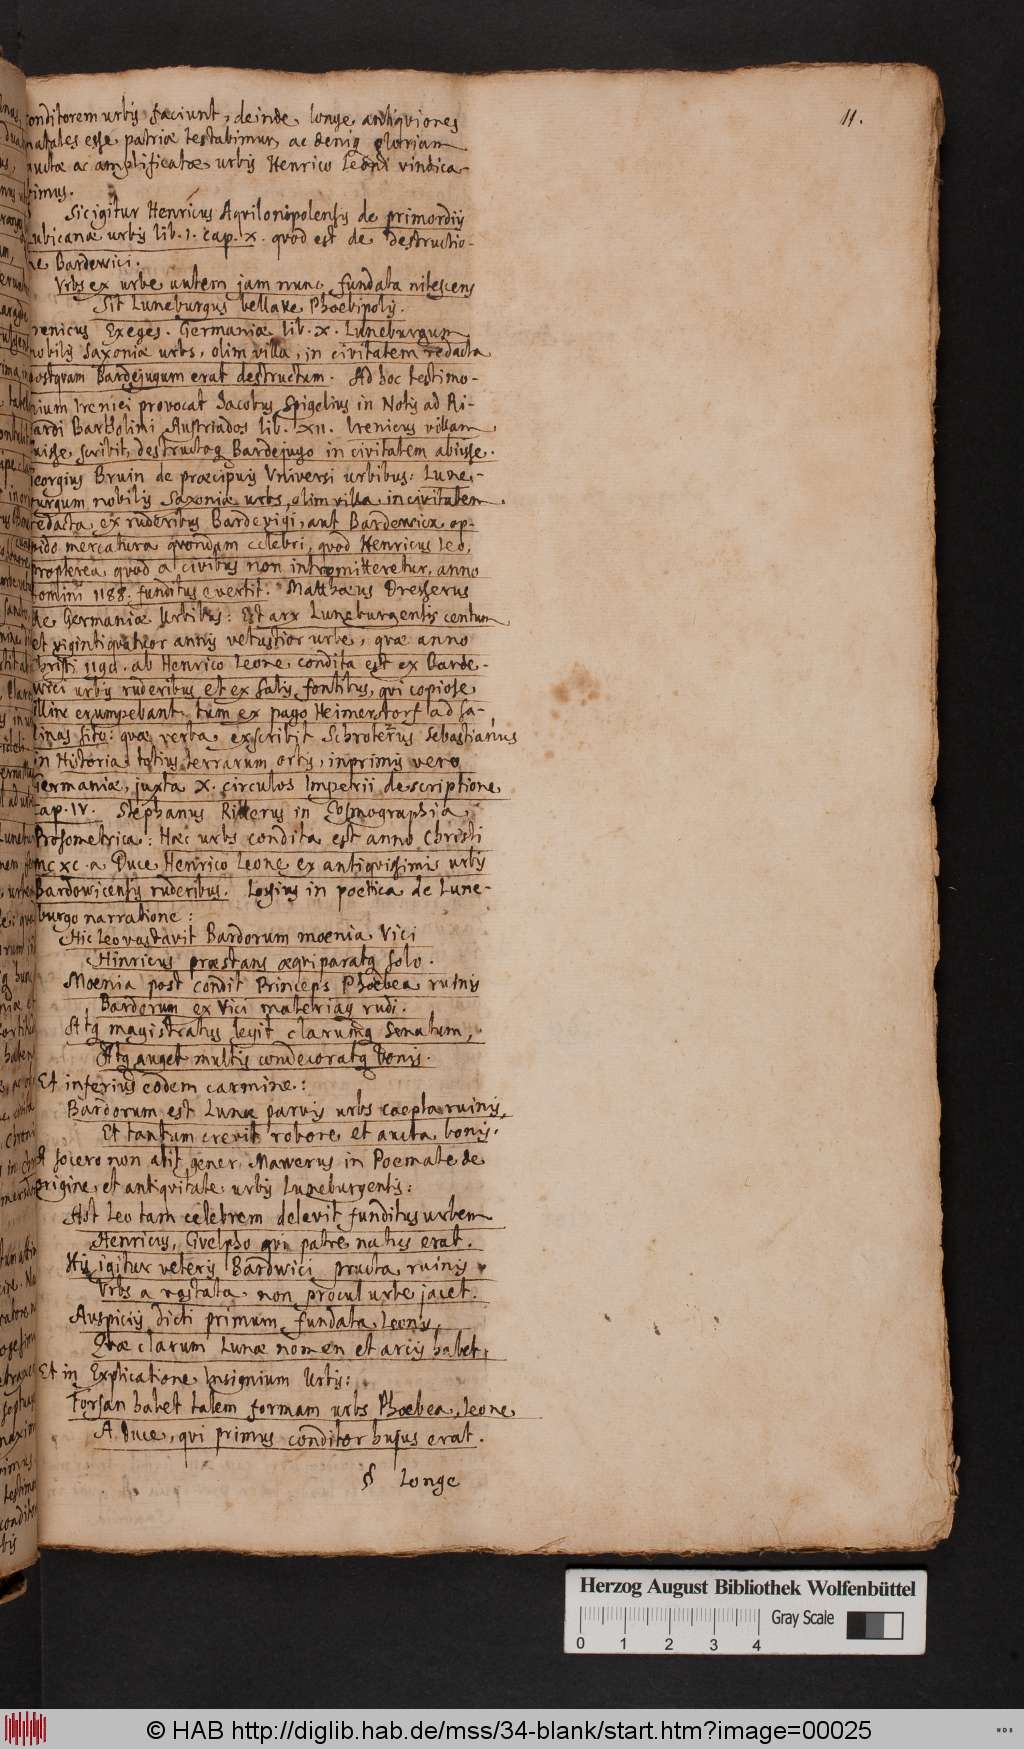 11.
conditorem urbis faciunt, deinde longe antiqviores
natales esse patriæ testabimur, ac deniq gloriam
auctæ ac amplificatæ urbis Henrico Leoni vindica-
bimus.
Sic igitur Henricus Aqvilonipolensis de primordiis
Lubicanæ urbis lib. 1. cap. X. quod est de destructio-
ne Bardewici.
Vrbs ex urbe autem jam nunc fundata nitescens
Sit Luneburgus bellave Phoebipolis.
Irenicus Exeges. Germaniæ lib. X. Luneburgum
nobilis Saxoniæ urbs, olim villa, in civitatem redacta
postquam Bardejugum erat destructum. Ad hoc testimo-
nium Irenici provocat Jacobus Spigelius in Notis ad Ri-
cardi Bartholini Austriados lib. XII. Irenicus villam
fuisse scribit, destructoq Bardejugo in civitatem abiisse.
Georgius Bruin de præcipuis Vniversi urbibus: Lune-
burgum nobilis Saxoniæ urbs, olim villa, in civitatem
redacta, ex ruderibus Bardevigi, aut Bardewick op-
pido mercatura qvondam celebri, quod Henricus Leo,
propterea, quod a civibus non intromitteretur, anno
Domini 1188. funditus evertit. Matthæus Dresserus
de Germaniæ Urbibus: Est arx Luneburgensis centum
et viginti qvatuor annis vetustior urbe, quæ anno
Christi 1190. ab Henrico Leone condita est ex Barde-
wici urbis ruderibus et ex salis fontibus, qui copiose
illinc erumpebant, tum ex pago Heimerstorf ad sa-
linas sito: quæ verba exscribit Schroterus Sebastianus
in Historia totius terrarum orbis, inprimis vero
Germaniæ, juxta X. circulos Imperii descriptione
cap. IV. Stephanus Ritterus in Cosmographia
Prosometrica: Hæc urbs condita est anno Christi
MCXC. a Duce Henrico Leone ex antiqvissimis urbis
Bardowicensis ruderibus. Lossius in poetica de Lune-
burgo narratione:
Hic Leo vastavit Bardorum moenia Vici
Hinricus præstans æqviparatq solo.
Moenia post condit Princeps Phoebea ruinis
Bardorum ex Vici materiaq rudi.
Atq magistratus legit clarumq Senatum,
Atq auget multis condecoratq bonis.
Et inferius eodem carmine:
Bardorum est Lunæ parvis urbs coepta ruinis,
Et tantum crevit robore et aucta bonis.
A socero non abit gener Mawerus in Poemate de
origine et antiqvitate urbis Luneburgensis:
Ast Leo tam celebrem delevit funditus urbem
Henricus, Gvelpho qvi patre natus erat.
His igitur veteris Bardwici structa ruinis
Urbs a vastata non procul urbe jacet.
Auspiciis dicti primum fundata Leonis,
Quæ clarum Lunæ nomen et arcis habet.
Et in Explicatione Insignium Urbis:
Forsan habet talem formam urbs Phoebea, Leone
A Duce, qvi primus conditor hujus erat.
§ Longe
Herzog August Bibliothek Wolfenbüttel
0 1 2 3 4
Gray Scale
© HAB http://diglib.hab.de/mss/34-blank/start.htm?image=00025